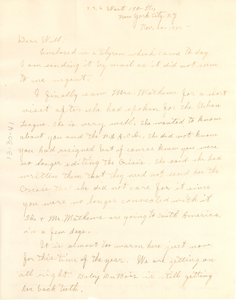 West 150 St
New York City
Dear Will,
Enclosed is a telegram which came to day
I am sending it by mail as it did not seem
to me urgent.
I finally saw Mrs. Mathews for a short
visit after she had spoken for the Urban
League. She is very well. She wanted to know
about you and the She did not know
you had resigned but of course knew you were
no longer editing the Crisis. She said she had
written them that they need not send her the
Crisis as she did not care for it since
you were no longer connected with it
She & Mr. Mathews are going to South America
in a few days.
It is almost too warm here just now
for this time of the year. We are getting on
all right. Baby DuBois is still getting
her back teeth.